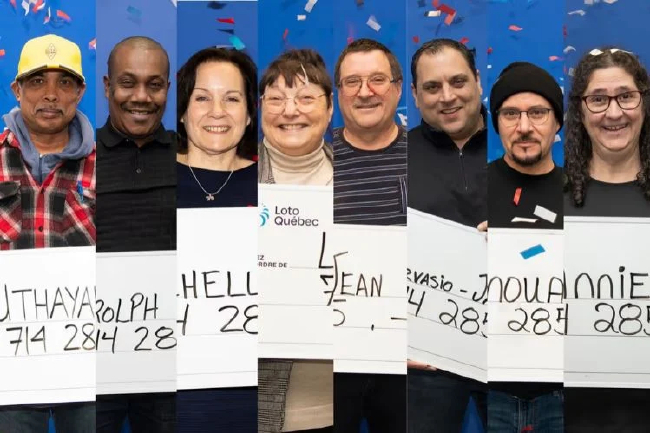 UTHAYA
714 28
ROLPH
14 28
HELL
4 28
Loto
Québec
ORDRE DE
L
JEAN
5,-
RVASIO-J
14 285
NOUA
285
NNIE
285